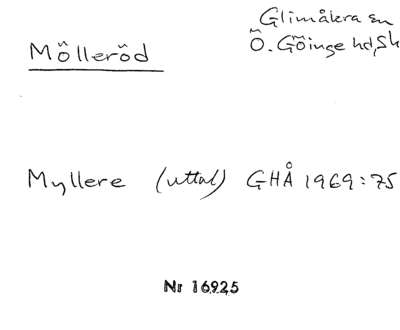 Mölleröd
Glimåkra sn
Ö. Göinge hd, Sk
Myllere (uttal) GHÅ 1969:75
Nr 16925